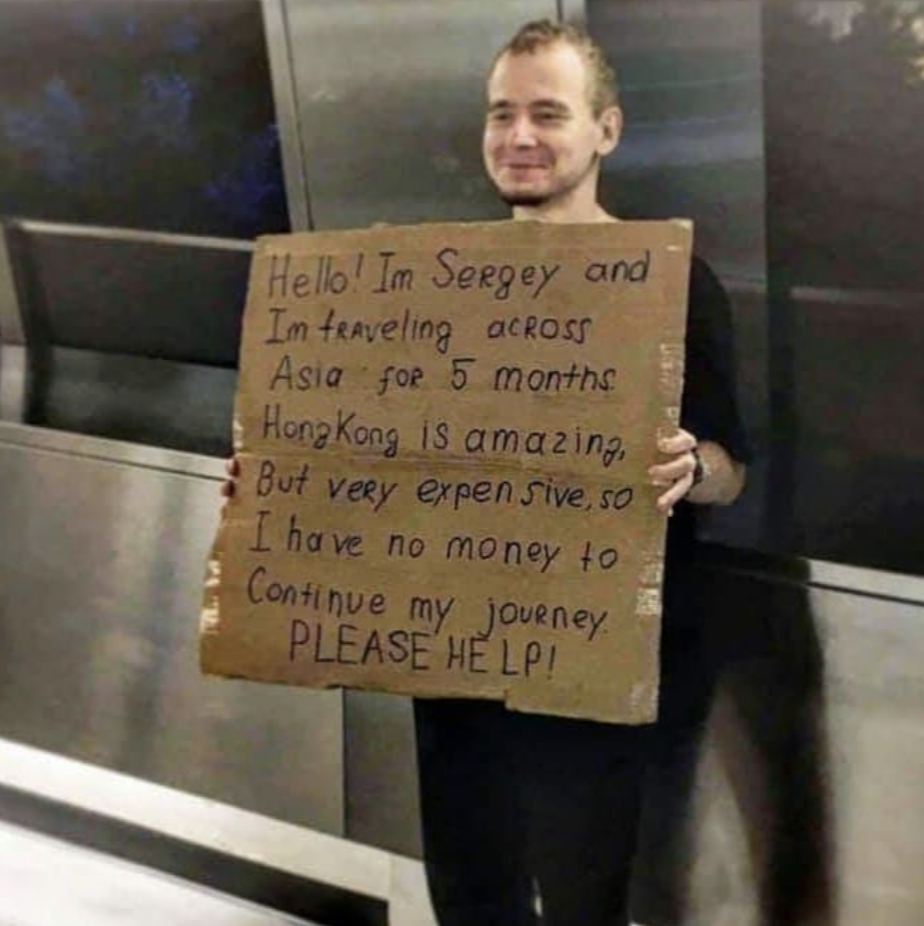 Hello! Im Sergey and
Im traveling across
Asia for 5 months
HongKong is amazing,
But very expensive, so
I have no money to
Continue my journey.
PLEASE HELP!